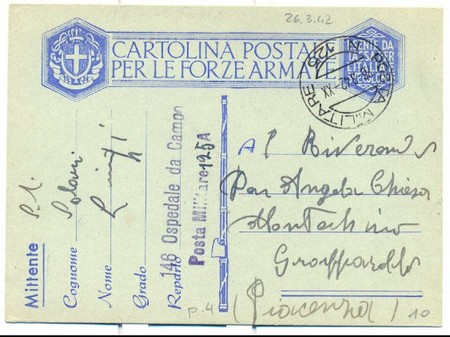 26.3.42
CARTOLINA POSTALE
PER LE FORZE ARMATE
POSTA MILITARE
125
Mittente
Cognome
Nome
Grado
Reparto
146 Ospedale da Campo
Posta Militare 125A
Al Reverendo
Don Angelo Chiesa
Montechino
Gropparello
(Piacenza)
p.4
10